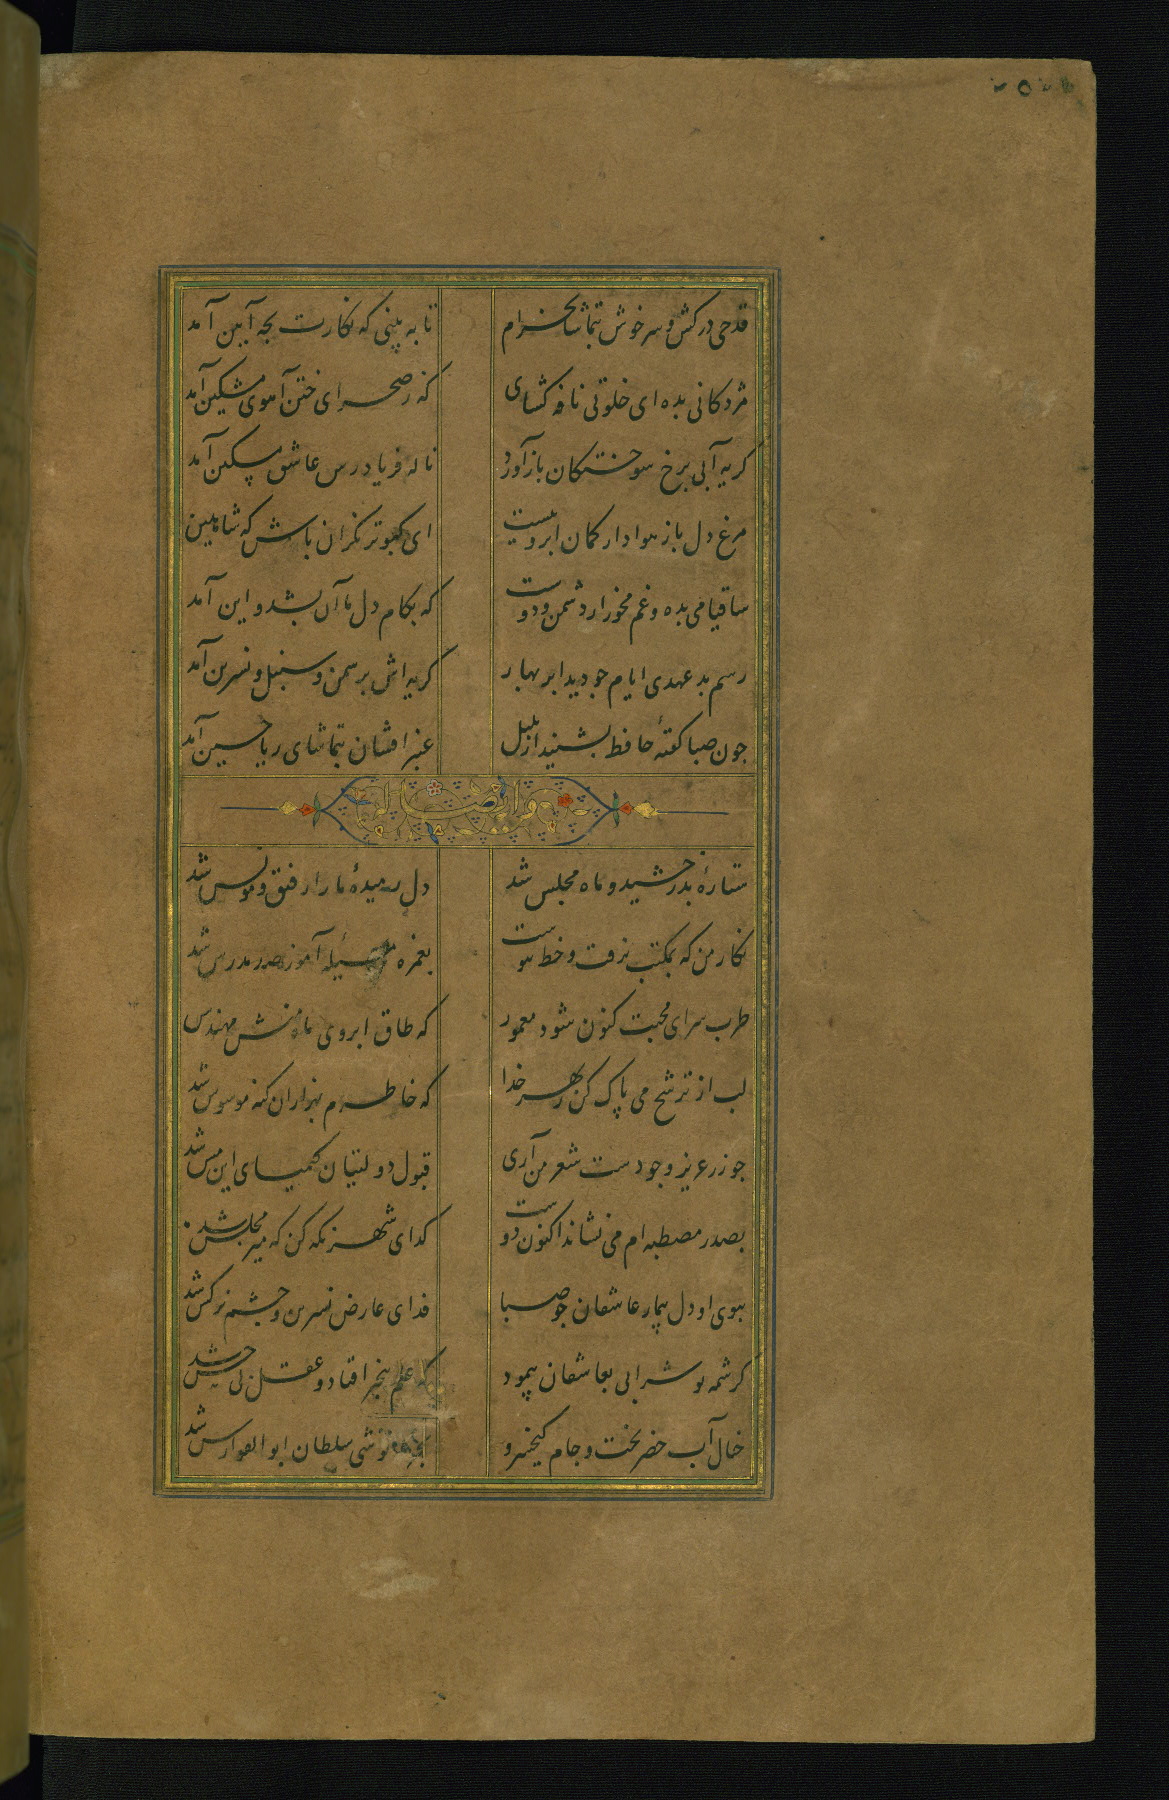 قدحی درکش و سرخوش بتماشا بخرام تا به بینی که نکارت بچه آیین آمد
مژدکانی بده ای خلوتی نافه کشای که ز صحرای ختن آهوی مشکین آمد
کریه آبی برخ سوختکان باز آورد ناله فریادرس عاشق مسکین آمد
مرغ دل باز هوادار کمان ابرویست ای کبوتر نکران باش که شاهین
ساقیا می بده و غم مخور از دشمن و دوست که بکام دل ما آن بشد و این آمد
رسم بدعهدی ایام جو دید ابر بهار کریه اش بر سمن و سنبل و نسرین آمد
جون صبا کفتهٔ حافظ بشنید از بلبل عنبرافشان بتماشای ریاحین آمد
و ایضا له
ستارهٔ بدرخشید و ماه مجلس شد دل رمیدهٔ ما را رفیق و مونس شد
نکار من که بمکتب نرفت و خط ننوشت بغمزه مسئله آموز صد مدرس شد
طرب سرای محبت کنون شود معمور که طاق ابروی ماه منش مهندس
لب از ترشح می پاک کن ز بهر خدا که خاطرم بهزاران کنه موسوس شد
جو زر عزیز وجودست شعر من آری قبول دولتیان کیمیای این مس شد
بصدر مصطبه ام می نشاند اکنون دوست کدای شهر نکه کن که میر مجلس شد
ببوی او دل بیمار عاشقان جو صبا فدای عارض نسرین و جشم نرکس شد
کرشمه تو شرابی بعاشقان پیمود که علم بیخبر افتاد و عقل بی حس شد
خیال آب خضر بخت و جام کیخسرو بجرعه نوشی سلطان ابوالفوارس شد